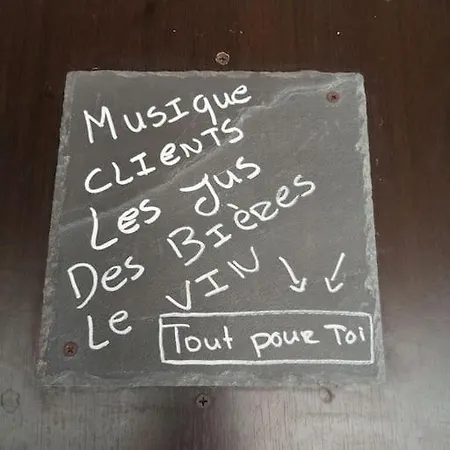 Musique
CLIENTS
Les Jus
Des Bières
Le VIN
Tout pour Toi